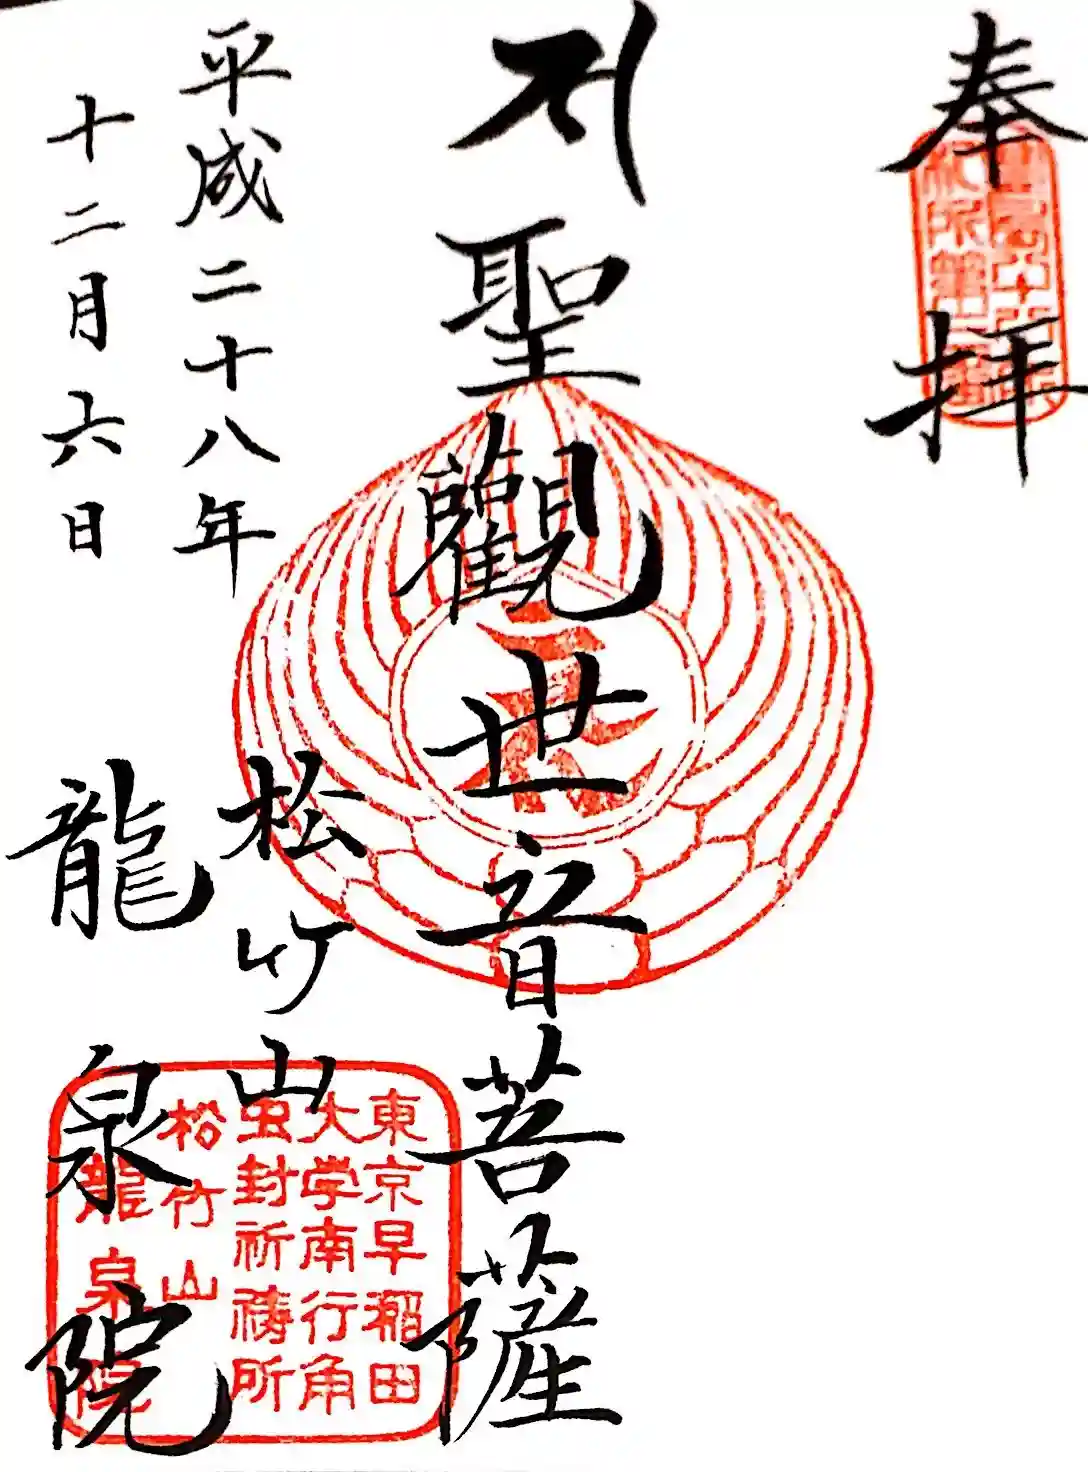 奉拝
聖觀世音菩薩
平成二十八年
十二月六日
松竹山
龍泉院
東京早稲田
大学南行角
虫封祈禱所
松竹山
龍泉院